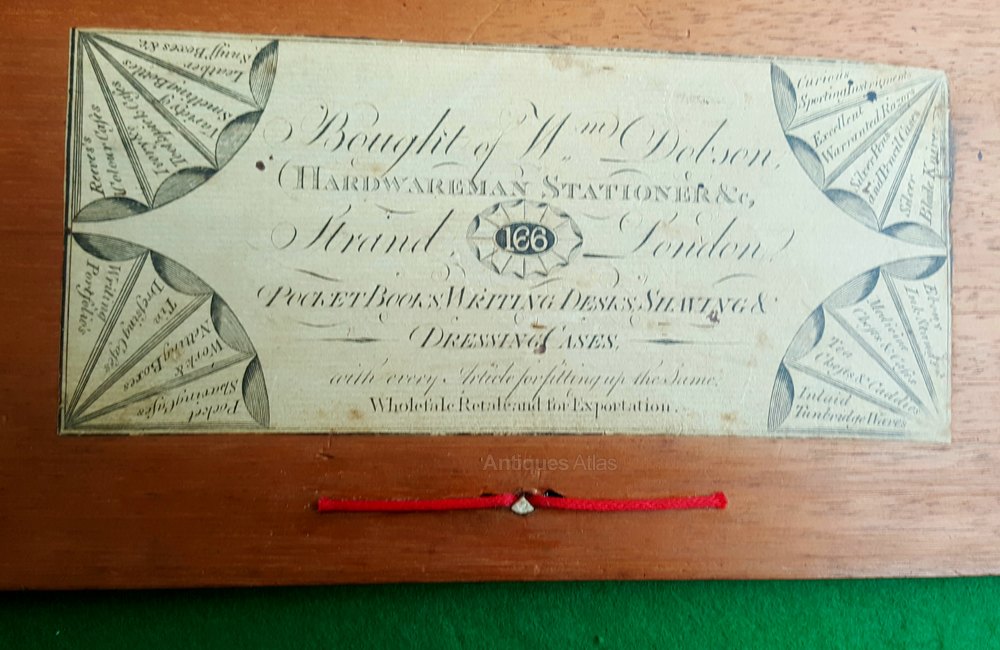 Bought of Wm Dobson,
HARDWAREMAN STATIONER &c,
Strand 166 London
POCKET BOOKS WRITING DESKS SHAVING &
DRESSING CASES,
with every Article for fitting up the Same,
Wholesale Retale and for Exportation.
Leather
Snuff Boxes &c.
Variety of
Smelling Bottles
Ivory &
Toothpick Cases
Reeves's
Colour
Curious
Sporting Instruments
Excellent
Warranted Razors
Silver Pens
and Pencil Cases
Silver
Blade Knives
Writing
Portfolio's
Dressing Cases
Work &
Netting Boxes
Pocket
Shaving Cases
Ebony
Ink Stands
Medicine
Chests & Cases
Tea
Chests & Caddies
Inlaid
Tunbridge Wares
Antiques Atlas